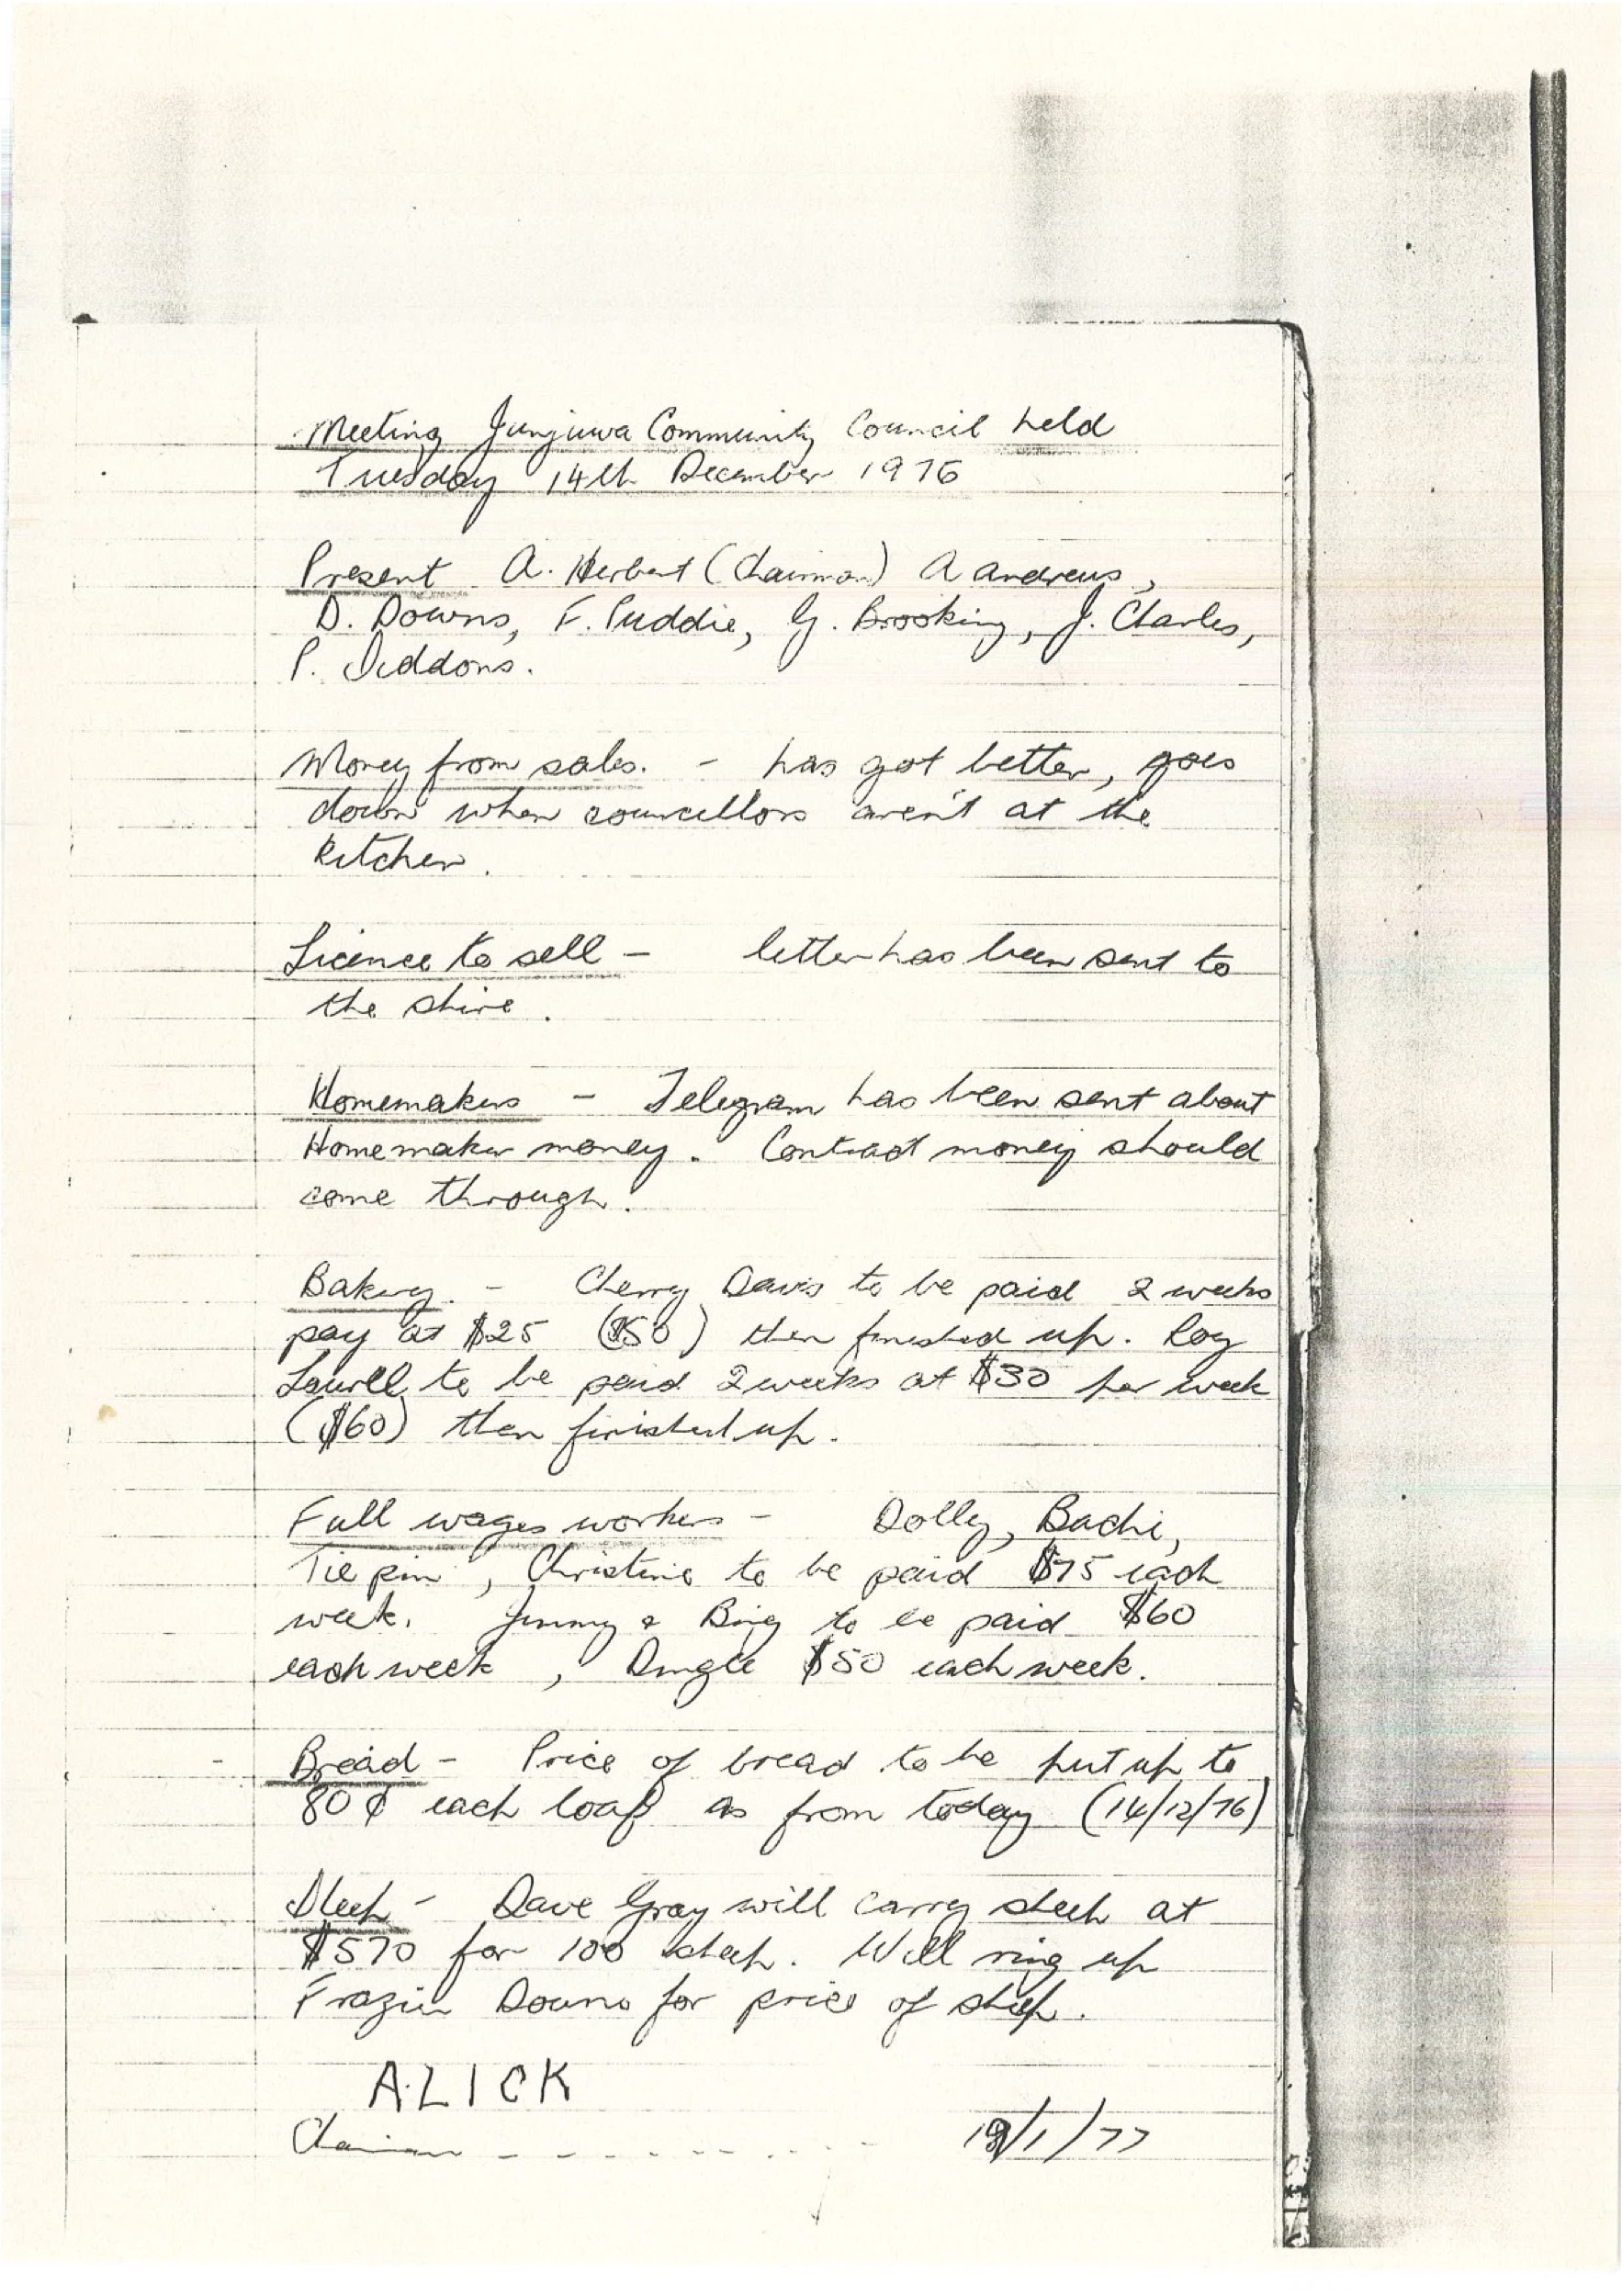 Meeting Junjuwa Community Council held
Tuesday 14th December 1976
Present A. Herbert (Chairman) A Andrews,
D. Downs, F. Puddie, G. Brooking, J. Charles,
P. Siddons.
Money from sales. - has got better, goes
down when councellors aren't at the
kitchen.
Licence to sell - letter has been sent to
the shire.
Homemakers - Telegram has been sent about
Homemaker money. Contract money should
come through.
Bakery. - Cherry Davis to be paid 2 weeks
pay at $25 ($50) then finished up. Roy
to be paid 2 weeks at $30 per week
($60) then finished up.
Full wages workers - Dolly, Bachi,
Tie pin, Christine to be paid $75 each
week. Jimmy & Bing to be paid $60
each week, $50 each week.
Bread - Price of bread to be put up to
80¢ each loaf as from today (14/12/76)
Sheep - Dave Gray will carry sheep at
$570 for 100 sheep. Will ring up
Frazier Downs for price of sheep.
ALICK
Chairman - - - - - - - - /1/77